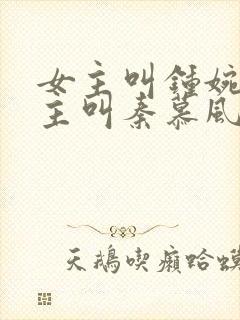 女主叫鍾婉
主叫秦慕風
天鵝喫癩蛤蟆